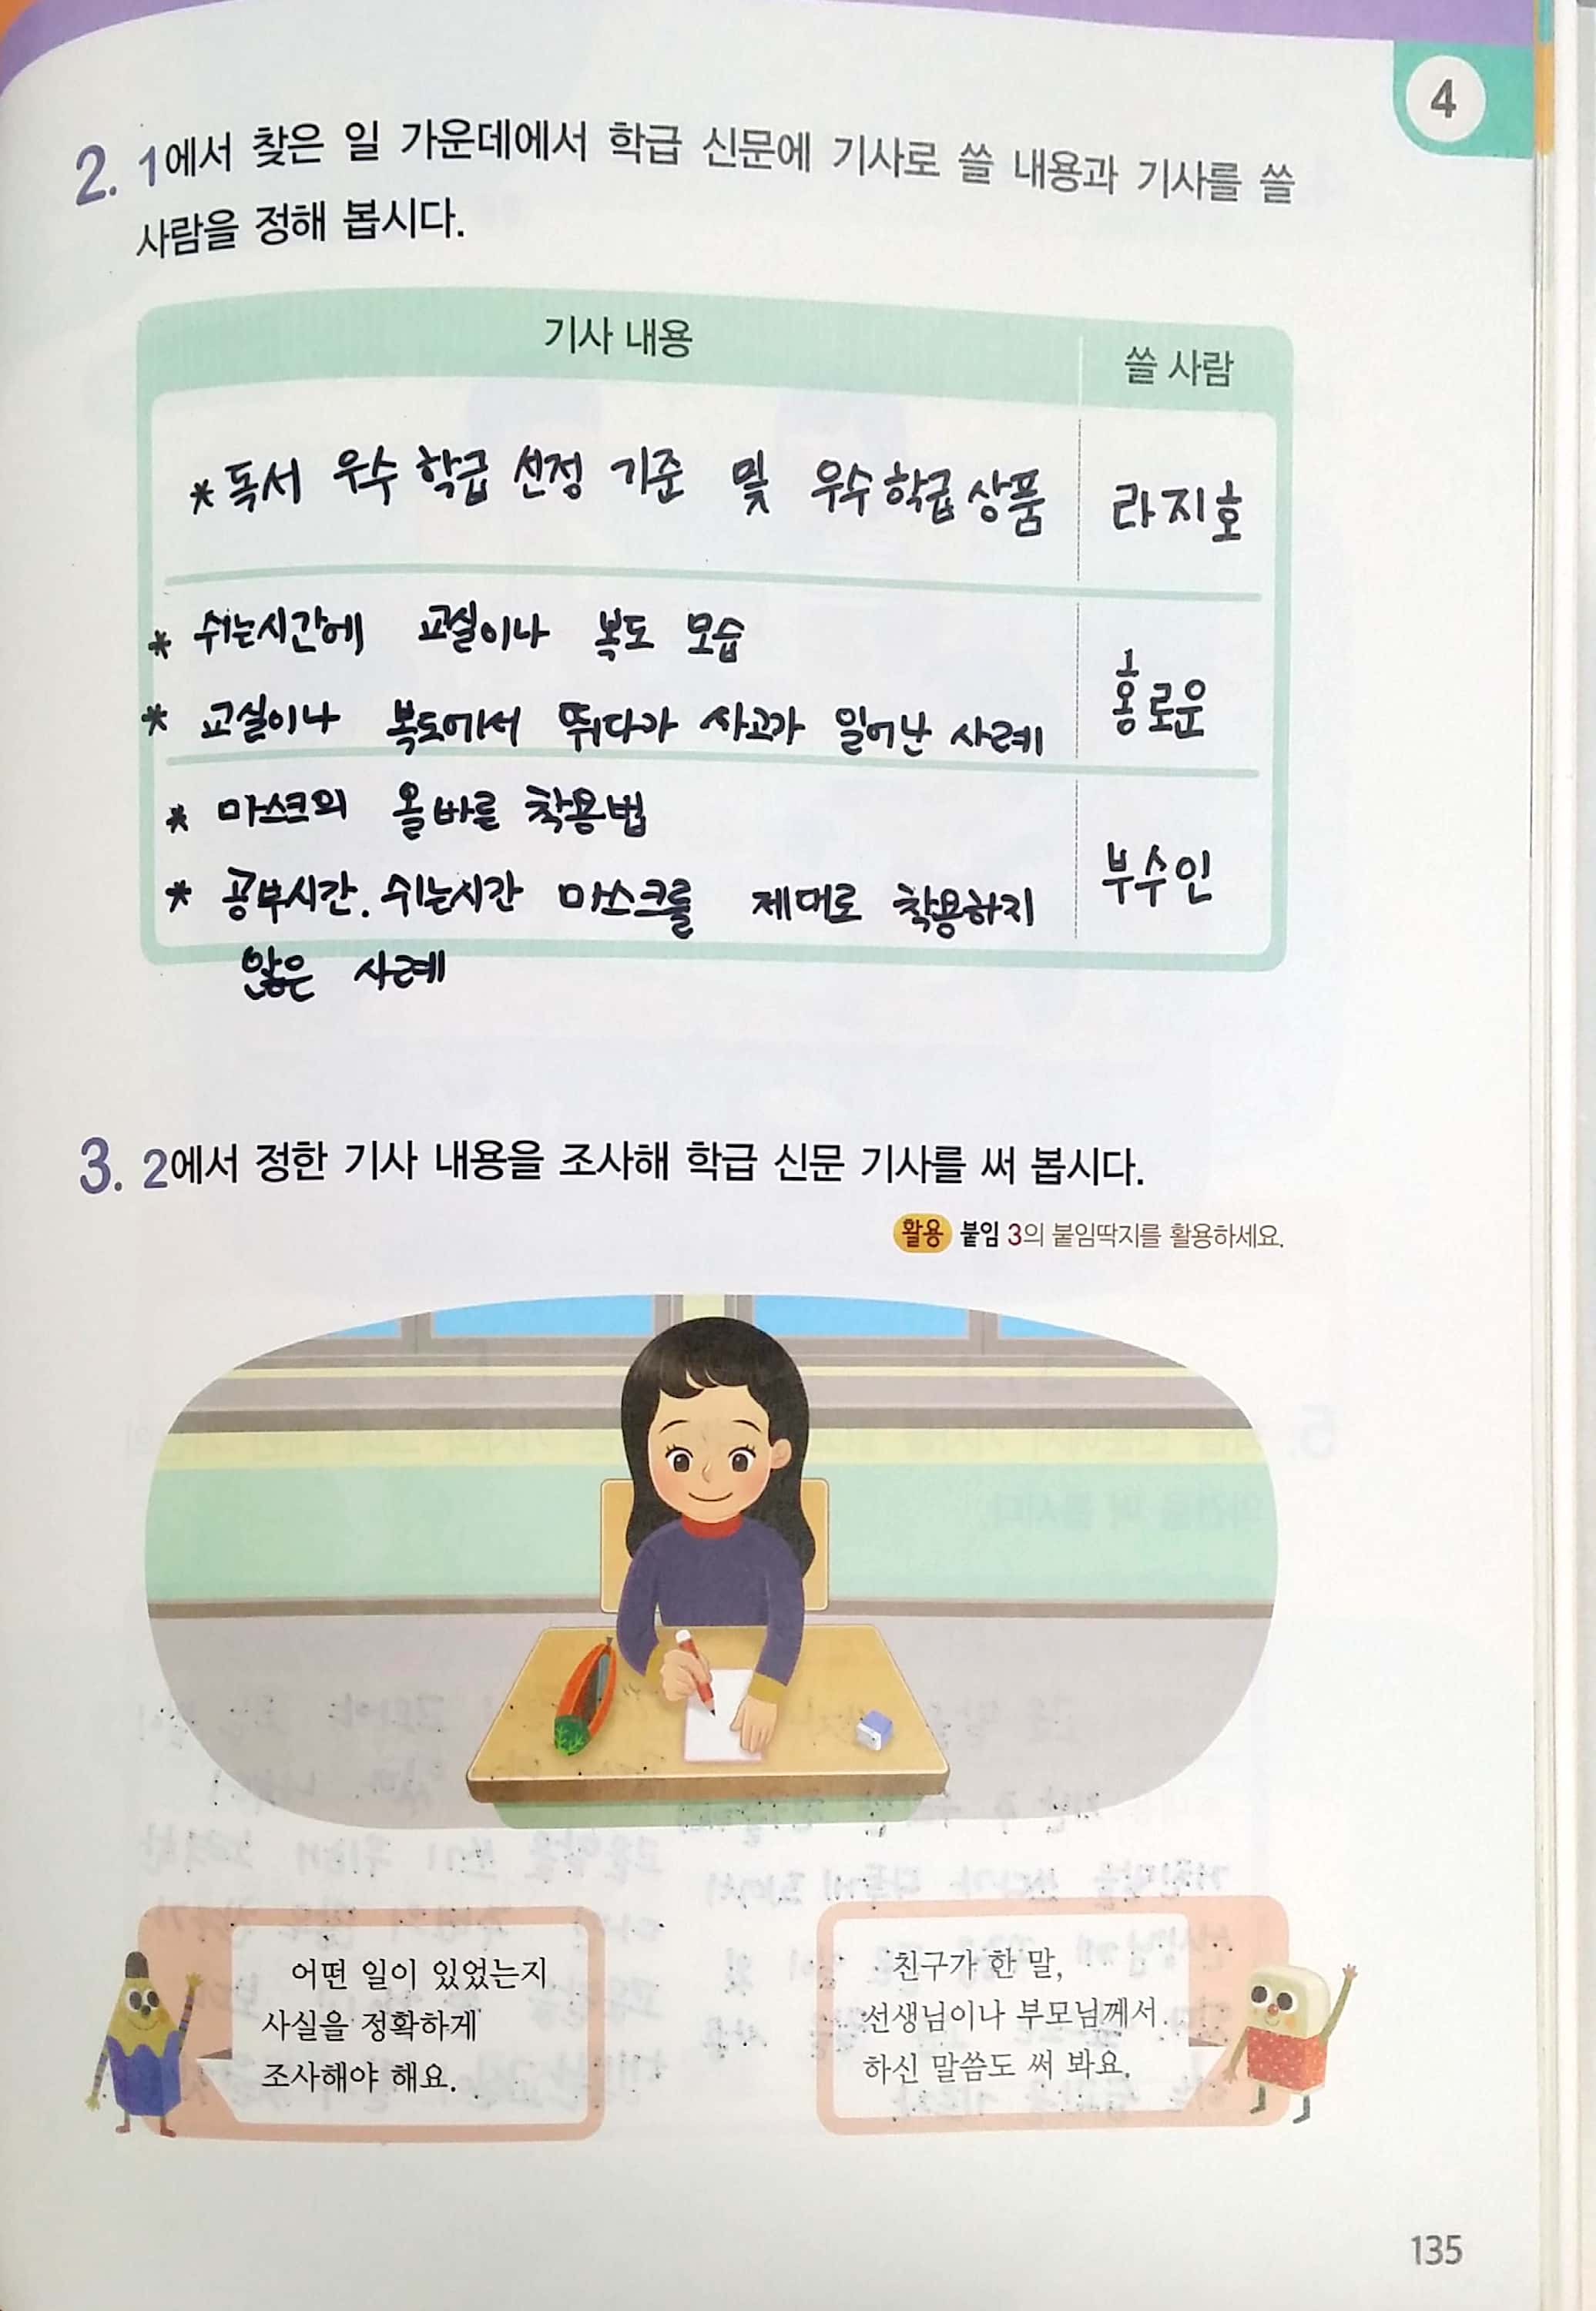 4
2. 1에서 찾은 일 가운데에서 학급 신문에 기사로 쓸 내용과 기사를 쓸
사람을 정해 봅시다.
기사 내용
쓸 사람
* 독서 우수 학급 선정 기준 및 우수학급상품
라지호
* 쉬는시간에 교실이나 복도 모습
* 교실이나 복도에서 뛰다가 사고가 일어난 사례
홍로운
* 마스크의 올바른 착용법
* 공부시간. 쉬는시간 마스크를 제대로 착용하지
않은 사례
부수인
3. 2에서 정한 기사 내용을 조사해 학급 신문 기사를 써 봅시다.
활용 붙임 3의 붙임딱지를 활용하세요.
어떤 일이 있었는지
사실을 정확하게
조사해야 해요.
친구가 한 말,
선생님이나 부모님께서
하신 말씀도 써 봐요.
135